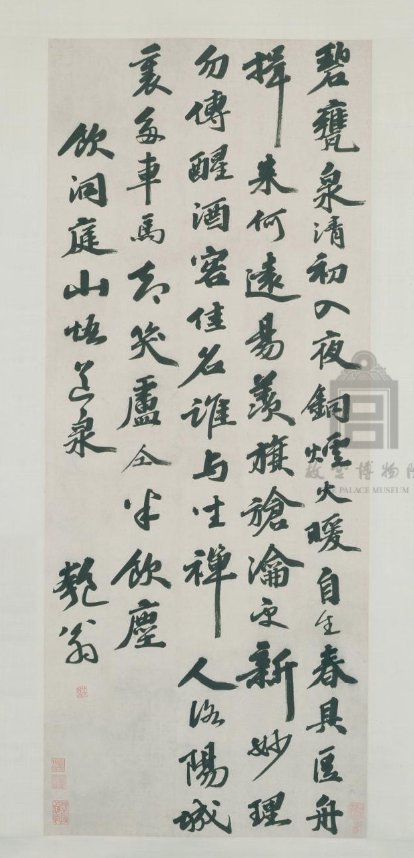 碧甕泉清初入夜銅爐火暖自生春具區舟
楫来何遠昜羨旗槍瀹更新妙理
勿傳醒酒客佳名誰与坐禪人洛陽城
裏多車馬却笑盧仝半飲塵
飲洞庭山悟道泉
匏翁
故宫博物院
PALACE MUSEUM